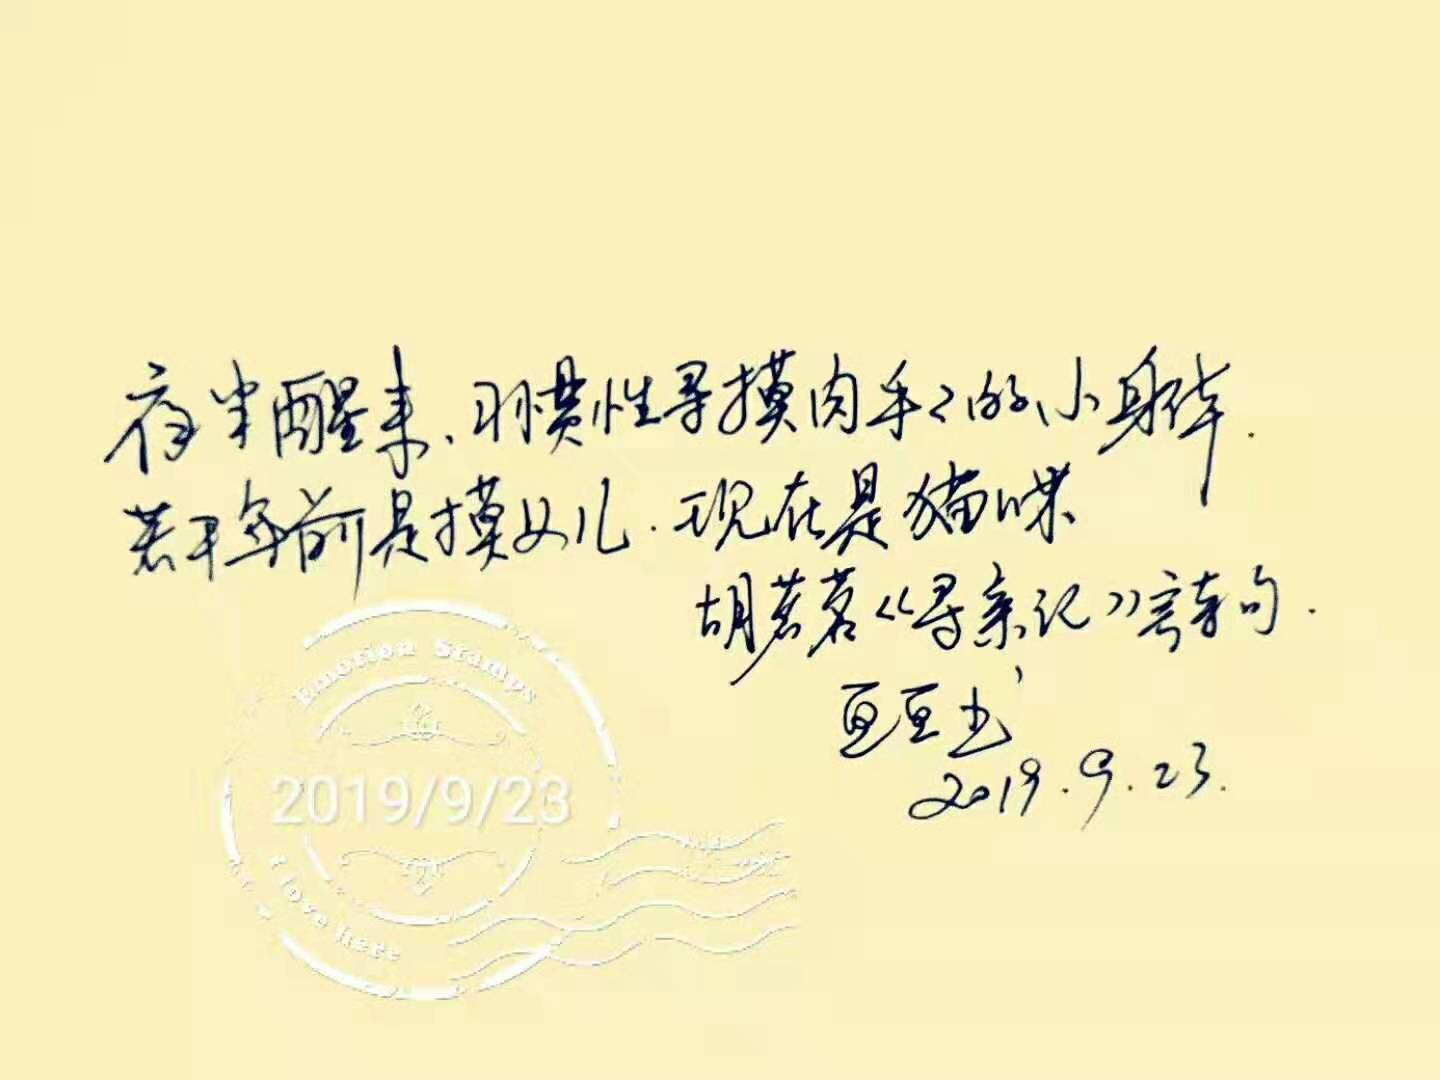 夜半醒来、习惯性寻摸肉乎乎的小身体.
若干年前是摸女儿.现在是猫咪
胡茗茗《寻亲记》
豆豆书
2019.9.23.
Emotion Stamps
2019/9/23
I love here